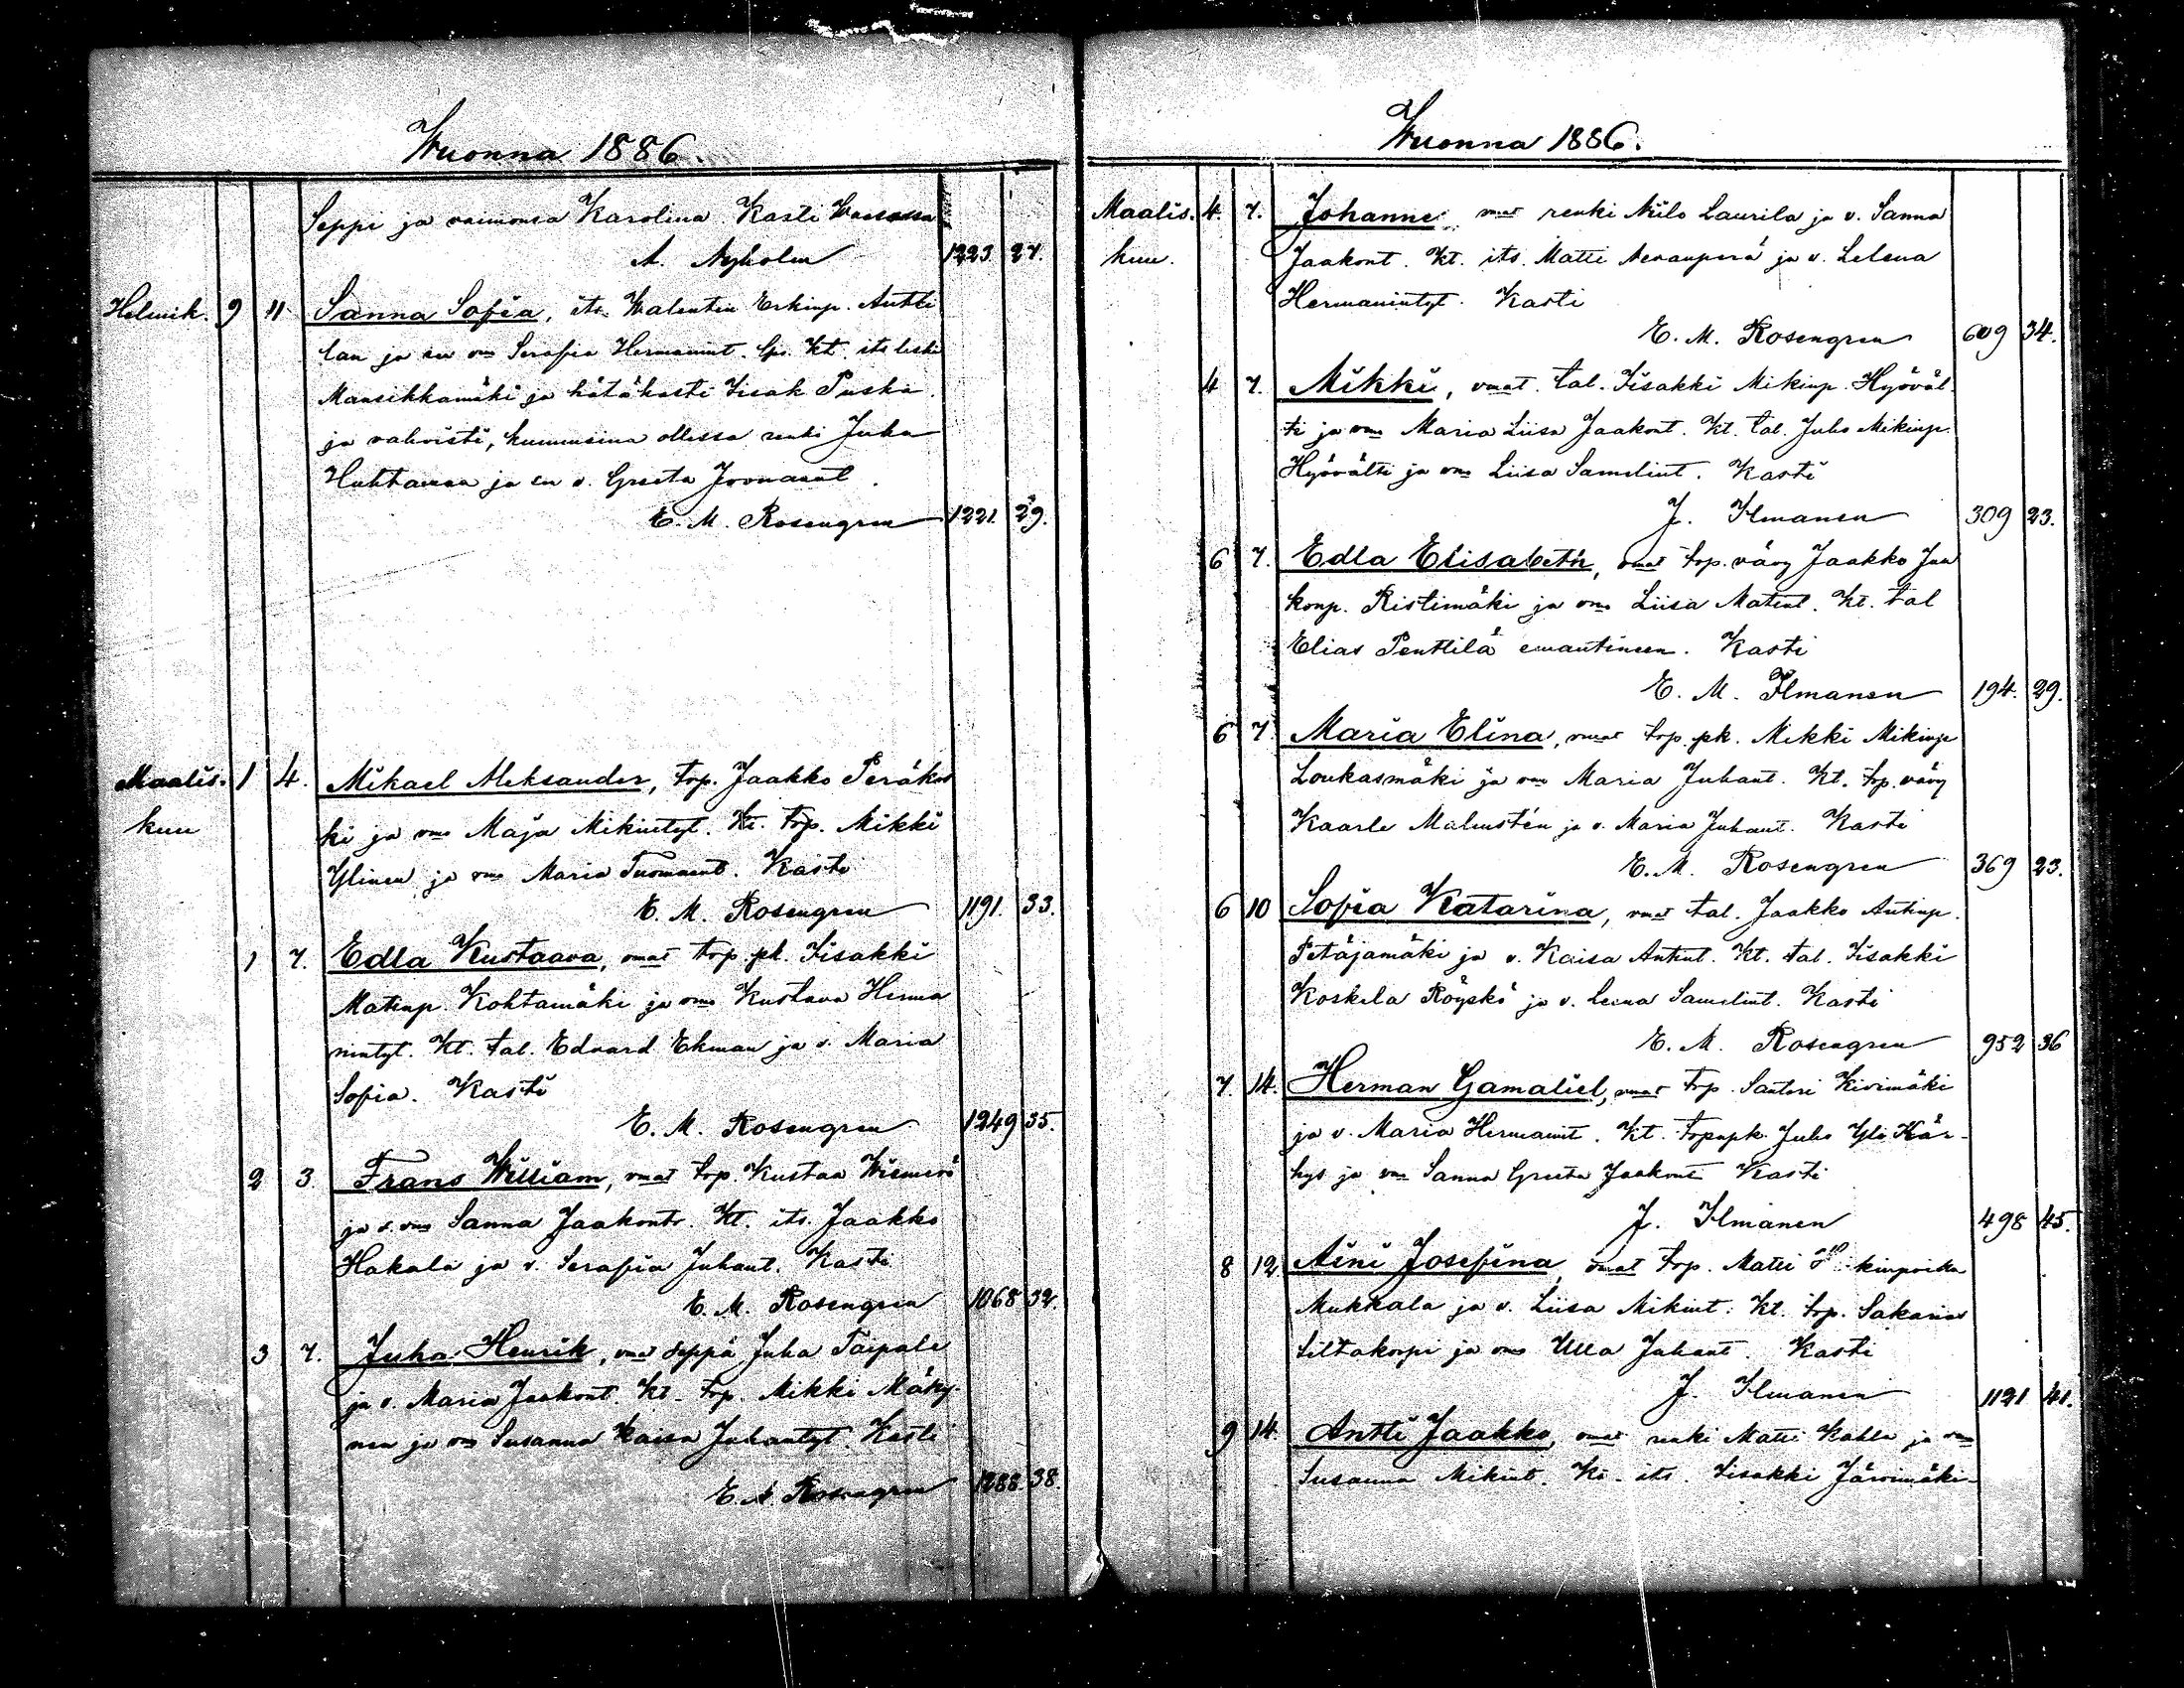 Wuonna 1886.
Seppi ja vaimonsa Karolina. Kasti Waasassa
A. Nyholm 1223 27.
Helmik. 9 11 Sanna Sofia, its. Walentin Erkinp. Antti
lan ja vm Serafia Hermannint. Kt. its leski
Mansikkamäki ja hätäkasti Iisak Puska
ja vahvisti, kummeina ollessa renki Juha
Huhtamaa ja v. Greeta Joonaant.
E. M. Rosengren 1221. 29.
Maalis. 1 4. Mikael Aleksander, trp. Jaakko Peräkos
kuu ki ja vms Maja Mikintyt. Kt. trp. Mikki
Ylinen ja vms Maria Tuomaant. Kasti
E. M. Rosengren 1191. 33.
1 7. Edla Kustaava, vmat trp. pk. Iisakki
Matinp. Kohtamäki ja vms Kustava Herma
nintyt. Kt. tal. Edvard Ekman ja v. Maria
Sofia. Kasti
E. M. Rosengren 1249 35.
2 3. Frans William, vmat trp. Kustaa
ja vms Sanna Jaakont. Kt. its. Jaakko
Hakala ja v. Serafia Juhant. Kasti
E. M. Rosengren 1068 32.
3 7. Juha Henrik, vmat seppä Juha Taipale
ja v. Maria Jaakont. Kt. trp. Mikki Mäky-
nen ja vms Susanna Kaisa Juhantyt. Kasti
E. M. Rosengren 1288. 38.
Wuonna 1886.
Maalis. 4. 7. Johanne vmat renki Niilo Laurila ja v. Sanna
kuu. Jaakont. Kt. its. Matti Nevanperä ja v. Lelena
Hermannintyt. Kasti
E. M. Rosengren 609 34.
4 7. Mikki, vmat. tal. Iisakki Mikinp. Hyöväl-
ti ja vms Maria Liisa Jaakont. Kt. tal. Juho Mikinp.
Hyövälti ja vms Liisa Samelint. Kasti
J. Ilmanen 309 23.
6 7. Edla Elisabeth, vmat trp. vävy Jaakko Jaa
konp. Ristimäki ja vms Liisa Matint. Kt. tal
Elias Penttilä emäntineen. Kasti
E. M. Ilmanen 194. 29.
6 7 Maria Elina, vmat trp. pk. Mikki Mikinp
Loukasmäki ja vms Maria Juhant. Kt. trp. vävy
Kaarle Malmstén ja v. Maria Juhant. Kasti
E. M. Rosengren 369 23.
6 10 Sofia Katarina, vmat tal. Jaakko Antinp.
Petäjämäki ja v. Kaisa Antint. Kt. tal. Iisakki
Koskela Röyskö ja v. Leena Samelint. Kasti
E. M. Rosengren 952 36
7. 14. Herman Gamaliel, vmat trp. Santeri Kivimäki
ja v. Maria Hermannit. Kt. trpnpk. Juho Yli Kär-
hys ja vms Sanna Greeta Jaakont Kasti
J. Ilmanen 498 45.
8 12. Aini Josefina, vmat trp. Matti kinpoika
Mukkala ja v. Liisa Mikint. Kt. trp. Sakarias
Siltakorpi ja vms Ulla Juhant. Kasti
J. Ilmanen 1121 41.
9 14. Antti Jaakko, vmat renki Matti Kahla ja vms
Susanna Mikint. Kt. its. Iisakki Järvimäki